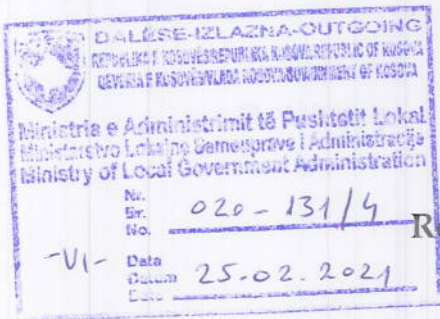 DALËSE-IZLAZNA-OUTGOING
REPUBLIKA E KOSOVËS/REPUBLIKA KOSOVA/REPUBLIC OF KOSOVA
QEVERIA E KOSOVËS/VLADA KOSOVA/GOVERNMENT OF KOSOVA
Ministria e Administrimit të Pushtetit Lokal
Ministarstvo Lokalne Samouprave i Administracije
Ministry of Local Government Administration
Nr.
Br.
No.
020-131/4
-VI-
Data
Datum
Date
25.02.2021